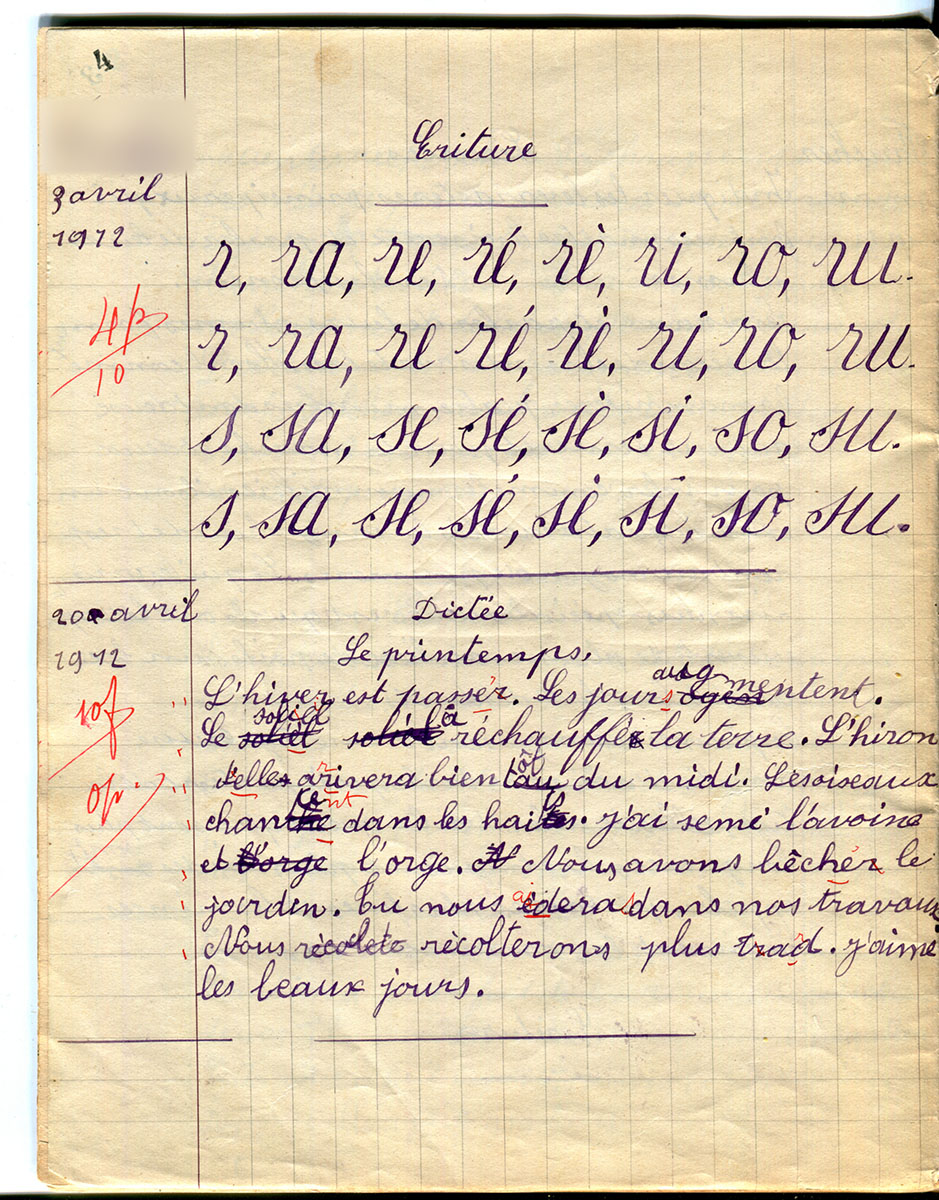 4
Ecriture
3 avril
1912
r, ra, re, ré, rè, ri, ro, ru.
4 p
10
r, ra, re ré, rè, ri, ro, ru.
s, sa, se, sé, sè, si, so, su.
s, sa, se, sé, sè, si, so, su.
20 avril
Dictée
1912
Le printemps,
10 f
L'hiver est passer. Les jours augmentent.
Le soliel a réchauffé la terre. L'hiron
delle arrivera bientôt du midi. Lesoiseaux
chantent dans les haies. j'ai semé l'avoine
et l'orge l'orge. Nous avons bêcher le
jardin. Tu nous aidera s dans nos travaux
Nous récolterons plus trad. j'aime
les beaux jours.